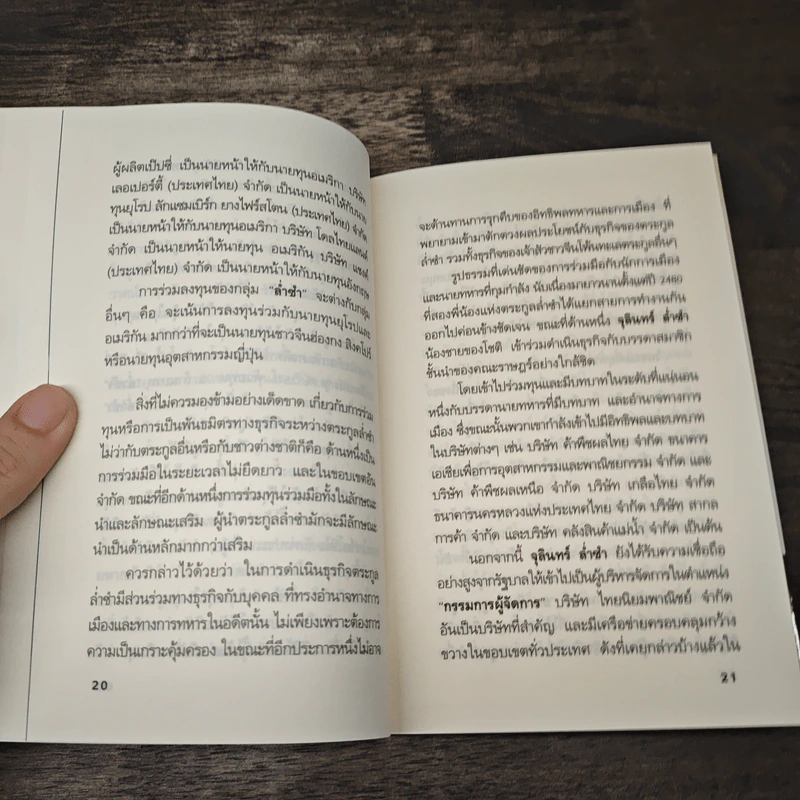 ผู้ผลิตเป๊ปซี่ เป็นนายหน้าให้กับนายทุนอเมริกา บริษัท
เลอเปอร์ตี้ (ประเทศไทย) จำกัด เป็นนายหน้าให้กับนาย
ทุนยุโรป ลักแซมเบิร์ก ยางไฟร์สโตน (ประเทศไทย) จำกัด
เป็นนายหน้าให้กับนายทุนอเมริกา บริษัท โดลไทยแลนด์
จำกัด เป็นนายหน้าให้นายทุน อเมริกัน บริษัท แชงค์
(ประเทศไทย) จำกัด เป็นนายหน้าให้กับนายทุนอังกฤษ
การร่วมลงทุนของกลุ่ม "ล่ำซำ" จะต่างกับกลุ่ม
อื่นๆ คือ จะเน้นการลงทุนร่วมกับนายทุนยุโรปและ
อเมริกัน มากกว่าที่จะเป็นนายทุนชาวจีนฮ่องกง สิงคโปร์
หรือนายทุนอุตสาหกรรมญี่ปุ่น
สิ่งที่ไม่ควรมองข้ามอย่างเด็ดขาด เกี่ยวกับการร่วม
ทุนหรือการเป็นพันธมิตรทางธุรกิจระหว่างตระกูลล่ำซำ
ไม่ว่ากับตระกูลอื่นหรือกับชาวต่างชาติก็คือ ด้านหนึ่งเป็น
การร่วมมือในระยะเวลาไม่ยืดยาว และในขอบเขตอัน
จำกัด ขณะที่อีกด้านหนึ่งการร่วมทุนร่วมมือทั้งในลักษณะ
นำและลักษณะเสริม ผู้นำตระกูลล่ำซำมักจะมีลักษณะ
นำเป็นด้านหลักมากกว่าเสริม
ควรกล่าวไว้ด้วยว่า ในการดำเนินธุรกิจตระกูล
ล่ำซำมีส่วนร่วมทางธุรกิจกับบุคคล ที่ทรงอำนาจทางการ
เมืองและทางการทหารในอดีตนั้น ไม่เพียงเพราะต้องการ
ความเป็นเกราะคุ้มครอง ในขณะที่อีกประการหนึ่งไม่อาจ
20
จะต้านทานการรุกคืบของอิทธิพลทหารและการเมือง ที่
พยายามเข้ามาตักตวงผลประโยชน์กับธุรกิจของตระกูล
ล่ำซำ รวมทั้งธุรกิจของเจ้าสัวชาวจีนโพ้นทะเลตระกูลอื่นๆ
รูปธรรมที่เด่นชัดของการร่วมมือกับนักการเมือง
และนายทหารที่กุมกำลัง นับเนื่องมายาวนานตั้งแต่ปี 2480
ที่สองพี่น้องแห่งตระกูลล่ำซำได้แยกสายการทำงานกัน
ออกไปค่อนข้างชัดเจน ขณะที่ด้านหนึ่ง จุลินทร์ ล่ำซำ
น้องชายของโชติ เข้าร่วมดำเนินธุรกิจกับบรรดาสมาชิก
ชั้นนำของคณะราษฎร์อย่างใกล้ชิด
โดยเข้าไปร่วมทุนและมีบทบาทในระดับที่แน่นอน
หนึ่งกับบรรดานายทหารที่มีบทบาท และอำนาจทางการ
เมือง ซึ่งขณะนั้นพวกเขากำลังเข้าไปมีอิทธิพลและบทบาท
ในบริษัทต่างๆ เช่น บริษัท ค้าพืชผลไทย จำกัด ธนาคาร
เอเชียเพื่อการอุตสาหกรรมและพาณิชยกรรม จำกัด และ
บริษัท ค้าพืชผลเหนือ จำกัด บริษัท เกลือไทย จำกัด
ธนาคารนครหลวงแห่งประเทศไทย จำกัด บริษัท สากล
การค้า จำกัด และบริษัท คลังสินค้าแม่น้ำ จำกัด เป็นต้น
นอกจากนี้ จุลินทร์ ล่ำซำ ยังได้รับความเชื่อถือ
อย่างสูงจากรัฐบาลให้เข้าไปเป็นผู้บริหารจัดการในตำแหน่ง
"กรรมการผู้จัดการ" บริษัท ไทยนิยมพาณิชย์ จำกัด
อันเป็นบริษัทที่สำคัญ และมีเครือข่ายครอบคลุมกว้าง
ขวางในขอบเขตทั่วประเทศ ดังที่เคยกล่าวบ้างแล้วใน
21